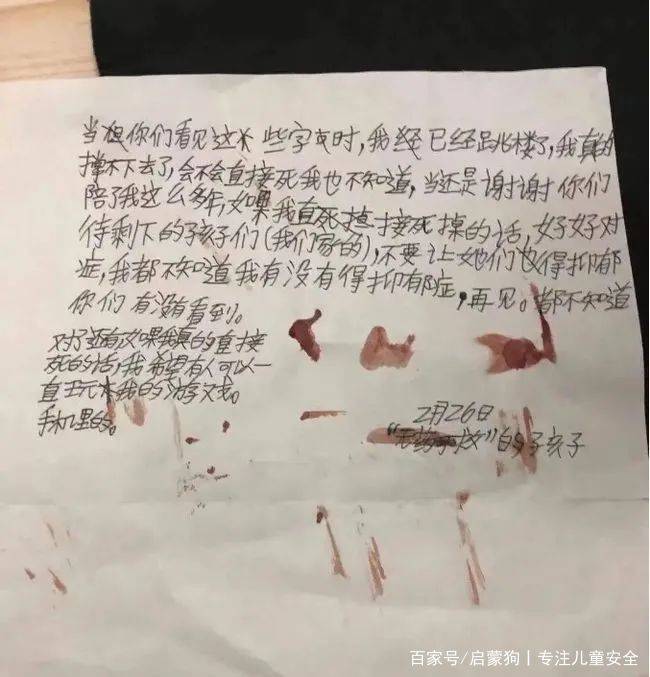 当但你们看见这些字时,我经已经跳楼了,我真的
撑不下去了,会不会直接死我也不知道,当还是谢谢你们
陪了我这么多年,如果我直接死掉的话,好好对
待剩下的孩子们(我们家的),不要让她们也得抑郁
症,我都不知道我有没有得抑郁症,再见。都不知道
你们有没有看到。
对了还有如果我真的直接
死的话,我希望有人可以一
直玩我的游戏。
手机里的。
2月26日
的孩子
百家号/启蒙狗丨专注儿童安全